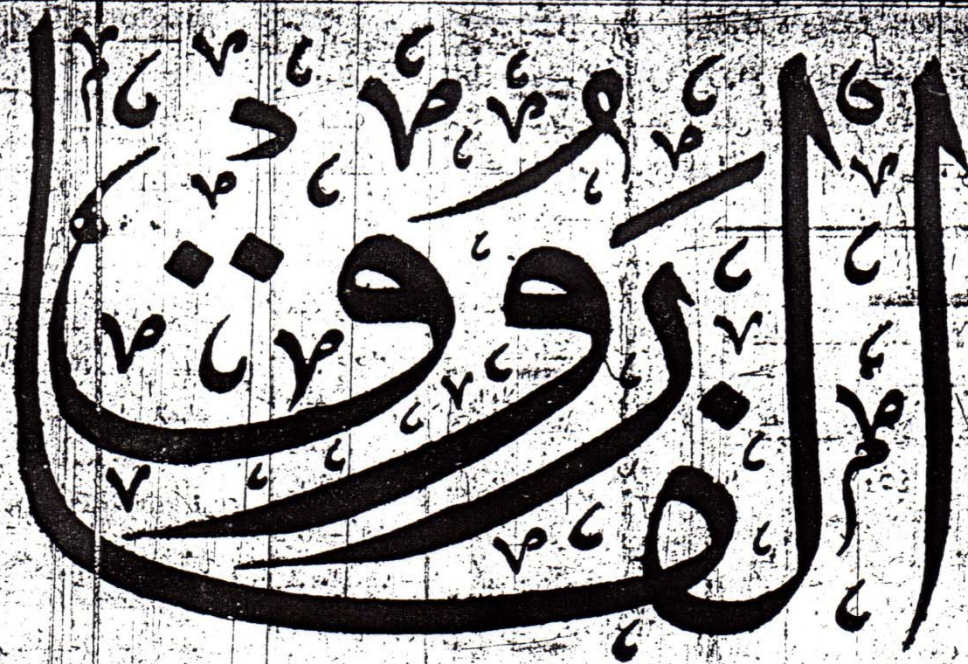 الفاروق